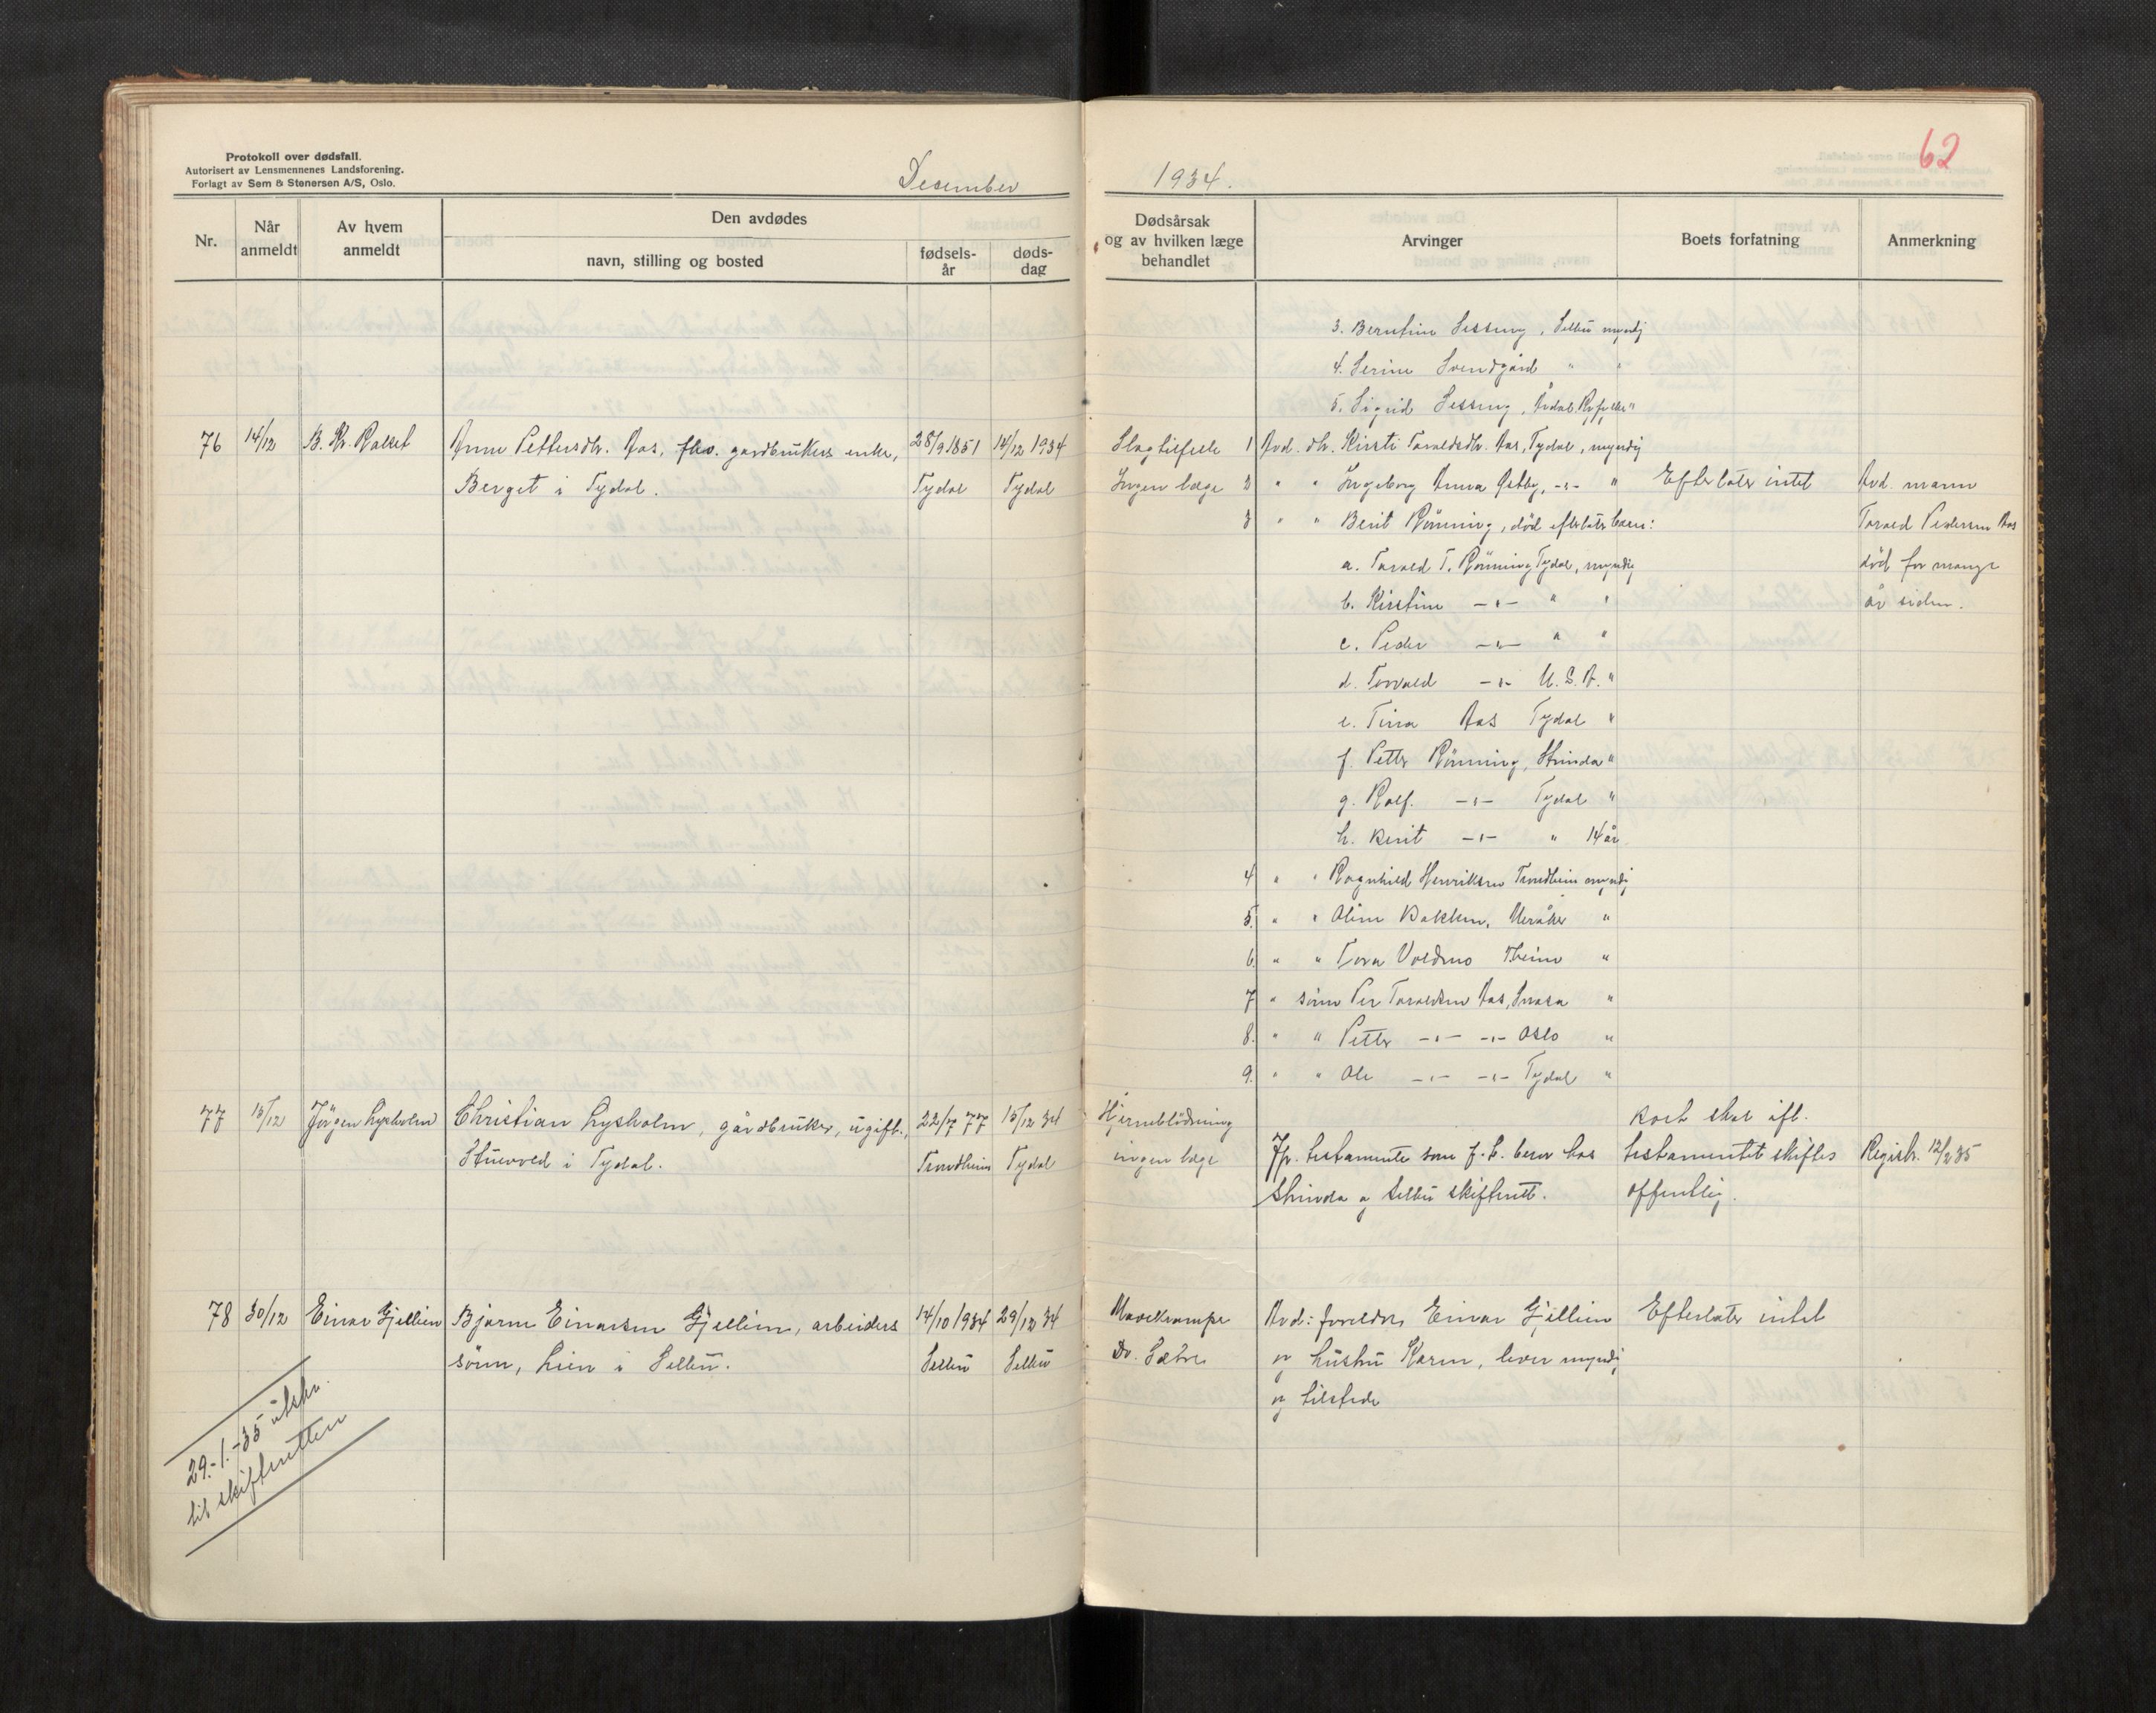 Protokoll over dødsfall.
Autorisert av Lensmennenes Landsforening.
Forlagt av Sem & Stenersen A/S, Oslo.
Desember
1934.
62
Nr.
Når anmeldt
Av hvem anmeldt
Den avdødes
navn, stilling og bosted
fødsels-år
døds-dag
Dødsårsak og av hvilken læge behandlet
Arvinger
Boets forfatning
Anmerkning
3. Berntine Sesseng, Selbu myndig
4. Serine Svendgård " "
5. Sigrid Sesseng, "
76 14/12 Anne Pettersdtr. Aas, fhv. gardbrukers enke, 28/9 1851 14/12 1934
Berget i Tydal. Tydal Tydal
Slagtilfelle 1 Avd. dtr. Kirsti Taraldsdtr. Aas, Tydal, myndig
Ingen læge 2 " " Ingeborg Anna Østby, -"- " Efterlater intet Avd. mann
3 " " Berit Rønning, død efterlater barn: Tarald Pedersen Aas
a. Tarald T. Rønning Tydal, myndig død for mange
b. Kirstine -"- " " år siden.
c. Peder -"- " "
d. Torvald -"- U.S.A. "
e. Tina Aas Tydal "
f. Petter Rønning, Strinda "
g. Rolf. -"- Tydal "
h. Berit -"- " 14 år
4 " " Ragnhild Henriksen Trondheim myndig
5. " " Oline Bakken, Meråker "
6. " " Tora Voldmo Theim "
7 " sønn Per Taraldsen Aas, Snåsa "
8. " " Petter -"- -"- Oslo "
9. " " Ole -"- -"- Tydal "
77 15/12 Jørgen Lysholm Christian Lysholm, gårdbruker, ugift, 22/7 77 15/12 34
Stuevold i Tydal. Trondheim Tydal
Hjerneblødning
ingen læge
Jfr. testamente som f. t. beror hos
Strinda og Selbu skifterett.
Boet skal ifl.
testamentet skiftes
offentlig.
Registr. 12/2 35
78 30/12 Einar Gjellien Bjarne Einarsen Gjellien, arbeiders 14/10 1934 29/12 34
sønn, Lien i Selbu. Selbu Selbu
Mavekrampe
Dr. Sætre
Avd: foreldre Einar Gjellien
og hustru Karen, lever myndig
og tilstede
Efterlater intet
29.-1.-35 utskr.
til skifteretten